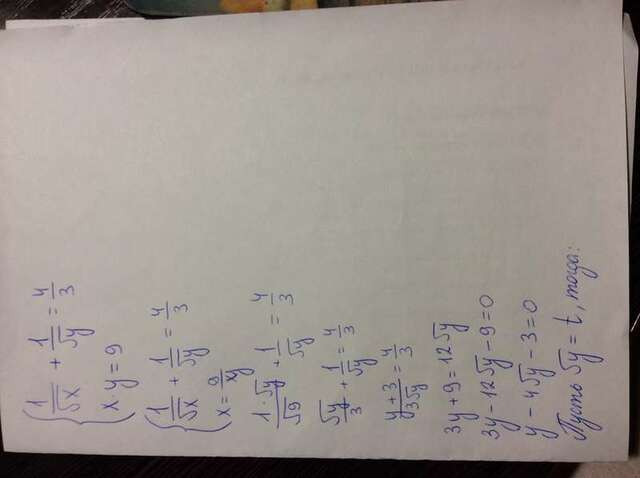 { 1/√x + 1/√y = 4/3
x · y = 9
{ 1/√x + 1/√y = 4/3
x = 9/xy
1·√y/√9 + 1/√y = 4/3
√y/3 + 1/√y = 4/3
y+3/3√y = 4/3
3y + 9 = 12√y
3y - 12√y - 9 = 0
y - 4√y - 3 = 0
Пусть √y = t, тогда: